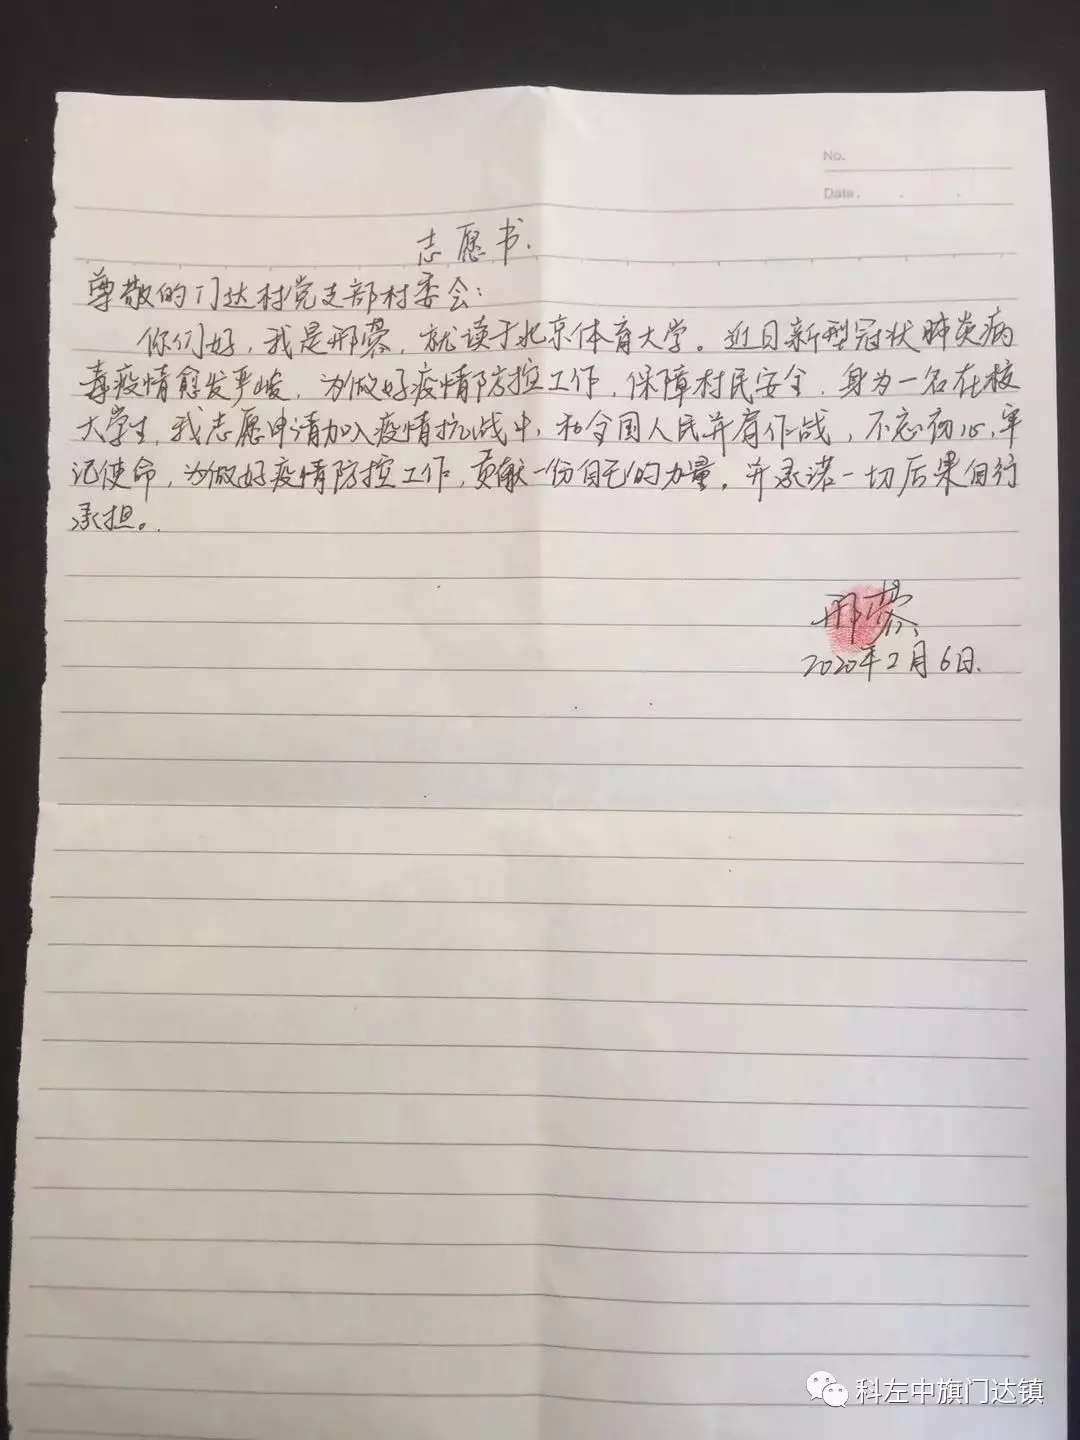 No.
Date.
志愿书.
尊敬的门达村党支部村委会:
你们好,我是邢蓉,就读于北京体育大学。近日新型冠状肺炎病
毒疫情愈发严峻,为做好疫情防控工作,保障村民安全,身为一名在校
大学生,我志愿申请加入疫情抗战中,和全国人民并肩作战,不忘初心,牢
记使命,为做好疫情防控工作,贡献一份自己的力量。并承诺一切后果自行
承担。
邢蓉
2020年2月6日.
科左中旗门达镇